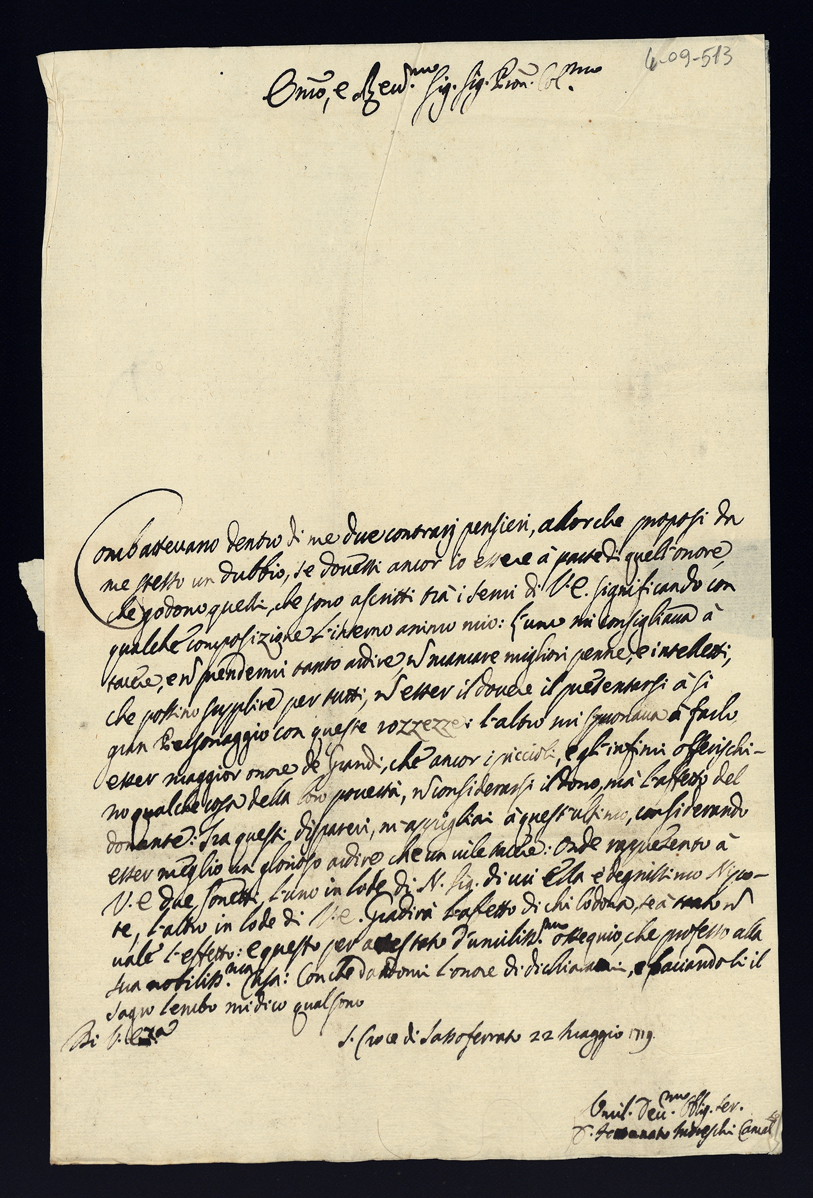 4-09-513
Emo, e Reu.mo Sig. Sig. Pron. Col.mo
Combatteuano dentro di me due contrarj pensieri, allorche proposi da
me stesso un dubbio, se douessi ancor io essere à parte di quell'onore,
che godono quelli, che sono ascritti trà i serui di V.E. significando con
qualche composizione l'interno animo mio: l'uno mi consigliaua à
tacere, e n prendermi tanto ardire, n mancare migliori penne, e intelletti,
che possino supplire per tutti, n esser il douere il presentarsi à si
gran Personaggio con queste rozzezze: l'altro mi spronaua à farlo
esser maggior onore de Grandi, che ancor i piccioli, e gl'infimi offerischi-
no qualche cosa della loro pouertà, n considerarsi il dono, mà l'affetto del
donante: Tra questi dispareri, m'appigliai à quest'ultimo, considerando
esser meglio un glorioso ardire che un uile tacere: Onde rappresento à
V.E due sonetti, l'uno in lode di N. Sig. di cui ella è degnissimo Nipo-
te, l'altro in lode di V.E. Gradirà l'affetto di chi lo dona, se à tanto n
uale l'effetto: e questo per attestato d'umiliss.mo ossequio, che professo alla
sua nobiliss.ma Casa: Con che dandomi l'onore di dichiararmi, e baciandoli il
sagro lembo mi dico qual sono
Di V. Emza
S. Croce di Sassoferrato 22 Maggio 1719
Umil. Deu.mo Oblig. ser.
D. Fortunato Camal